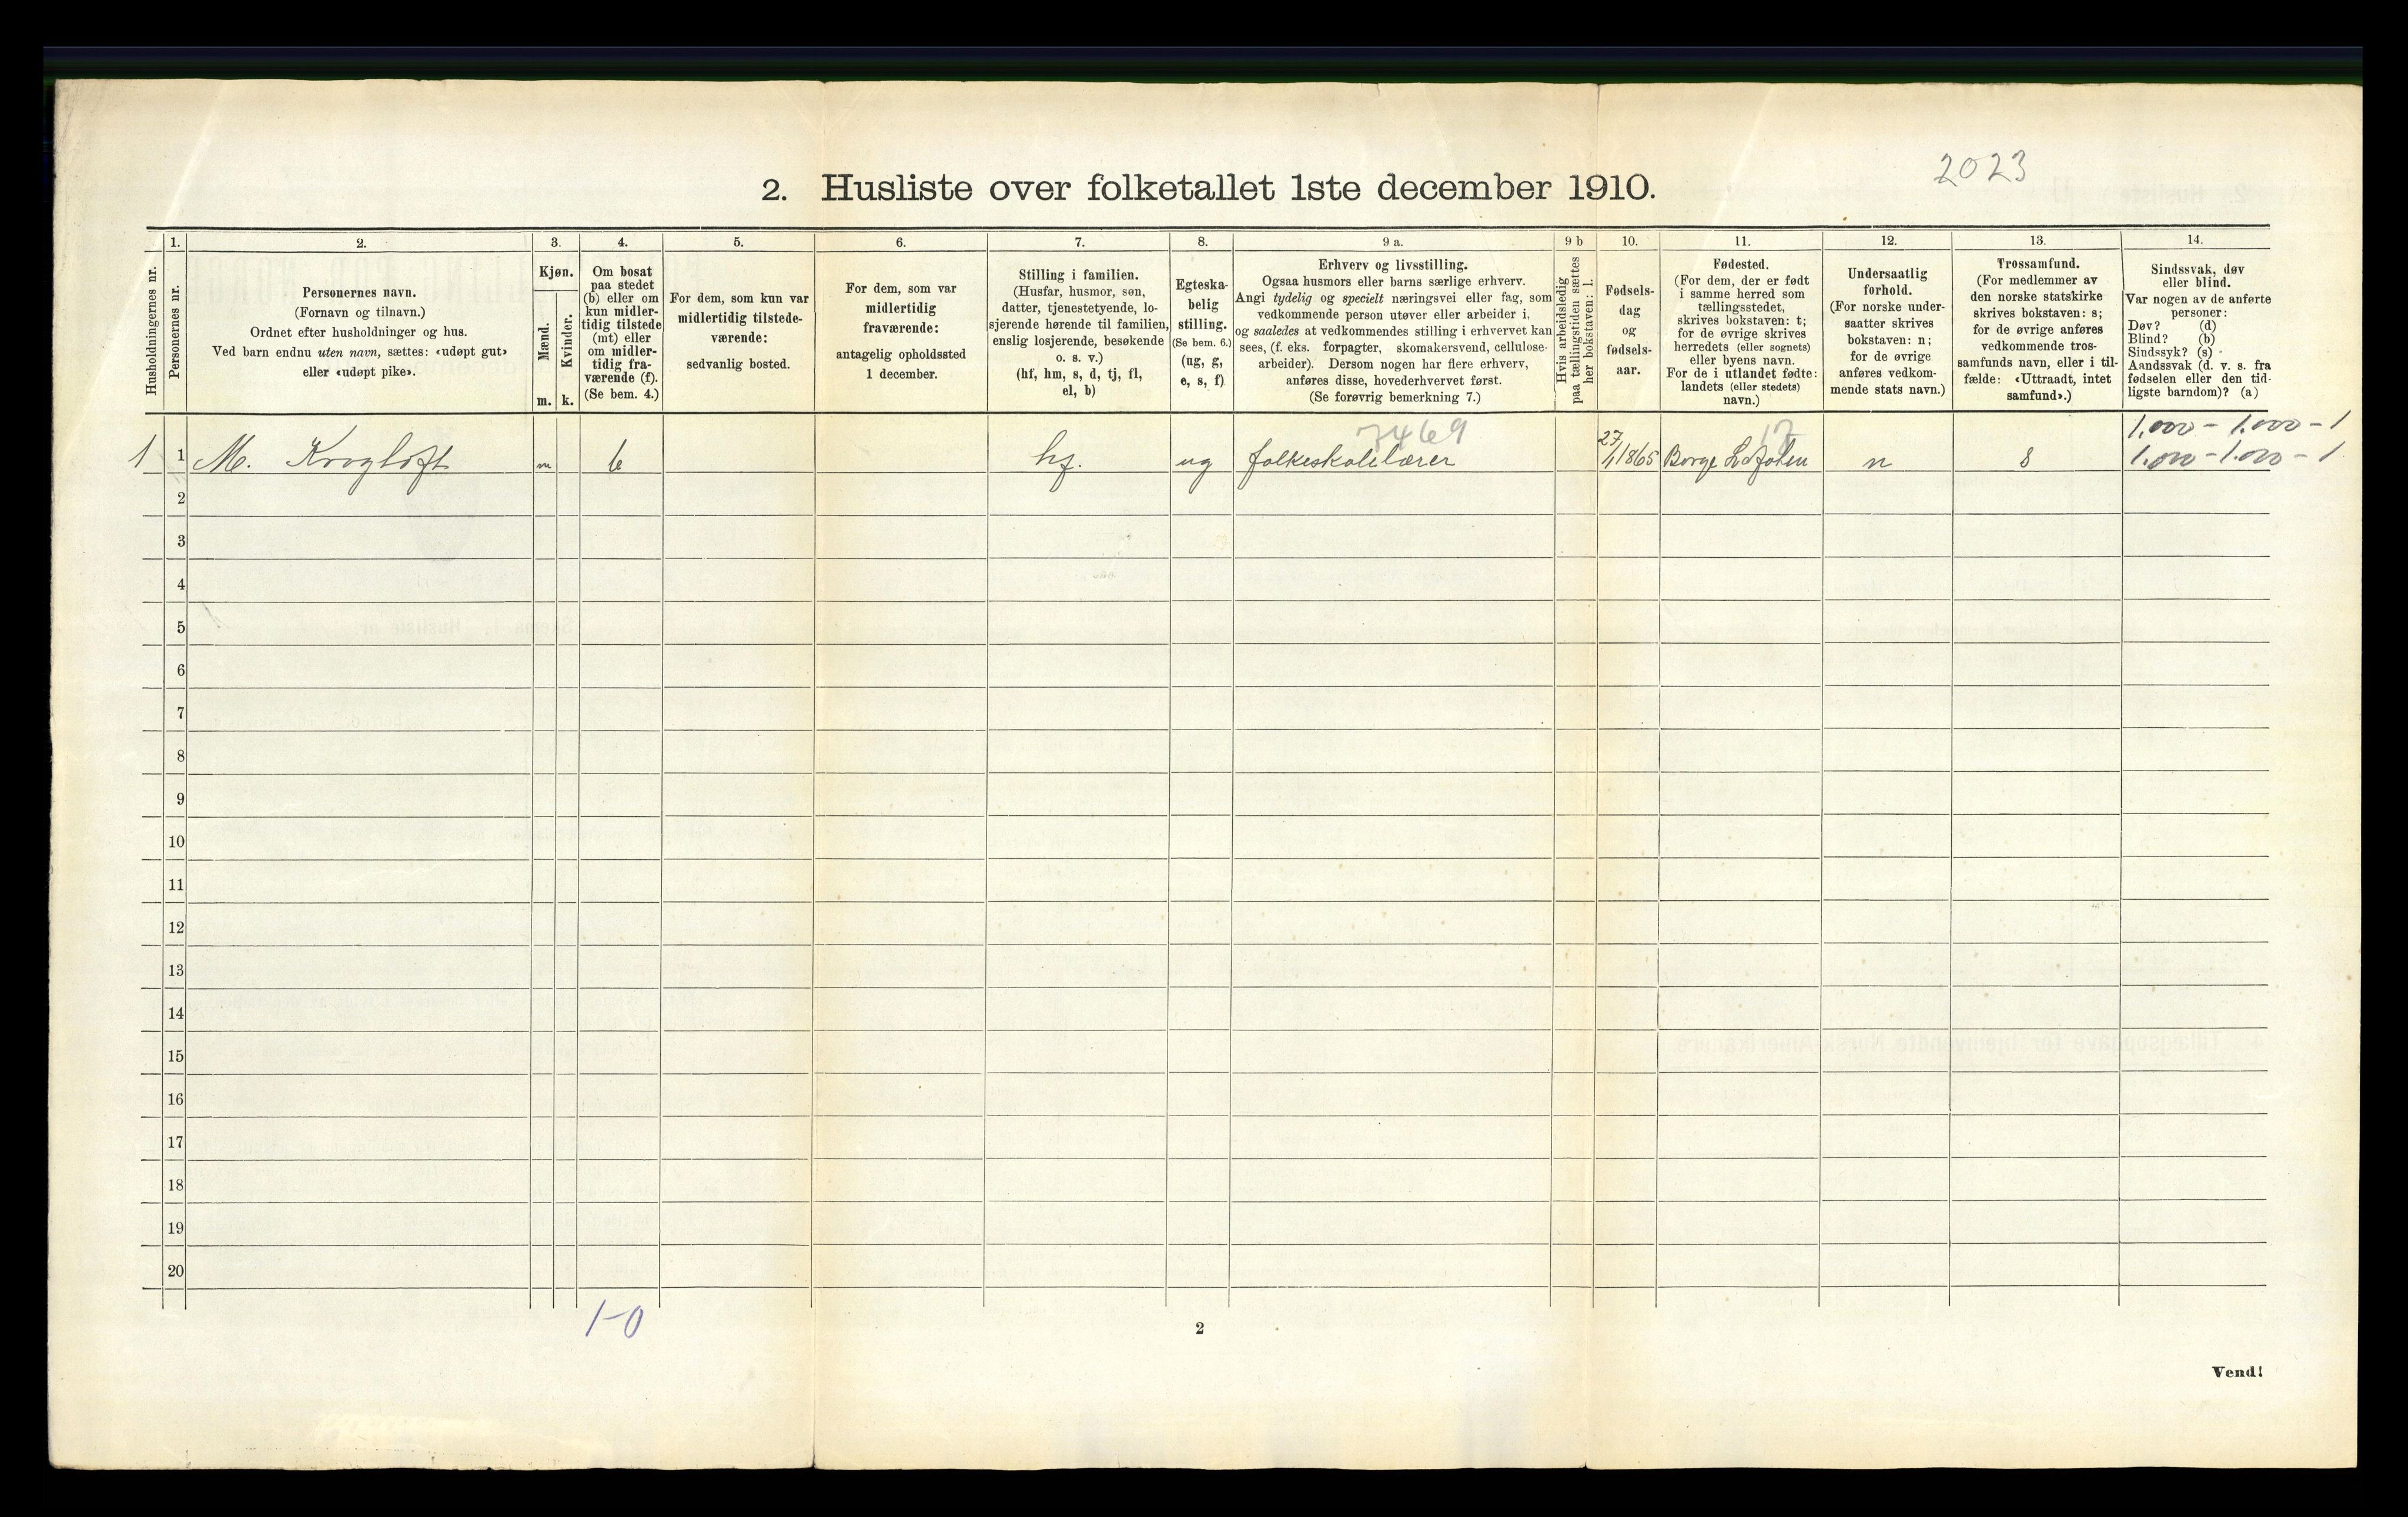 2023
2. Husliste over folketallet 1ste december 1910.
Husholdningernes nr.
1.
Personernes nr.
2.
Personernes navn.
(Fornavn og tilnavn.)
Ordnet efter husholdninger og hus.
Ved barn endnu uten navn, sættes: «udøpt gut»
eller «udøpt pike».
3.
Kjøn.
Mænd.
Kvinder.
m.
k.
4.
Om bosat
paa stedet
(b) eller om
kun midler-
tidig tilstede
(mt) eller
om midler-
tidig fra-
værende (f).
(Se bem. 4.)
5.
For dem, som kun var
midlertidig tilstede-
værende:
sedvanlig bosted.
6.
For dem, som var
midlertidig
fraværende:
antagelig opholdssted
1 december.
7.
Stilling i familien.
(Husfar, husmor, søn,
datter, tjenestetyende, lo-
sjerende hørende til familien,
enslig losjerende, besøkende
o. s. v.)
(hf, hm, s, d, tj, fl,
el, b)
8.
Egteska-
belig
stilling.
(Se bem. 6.)
(ug, g,
e, s, f)
9 a.
Erhverv og livsstilling.
Ogsaa husmors eller barns særlige erhverv.
Angi tydelig og specielt næringsvei eller fag, som
vedkommende person utøver eller arbeider i,
og saaledes at vedkommendes stilling i erhvervet kan
sees, (f. eks. forpagter, skomakersvend, cellulose-
arbeider). Dersom nogen har flere erhverv,
anføres disse, hovederhvervet først.
(Se forøvrig bemerkning 7.)
9 b
Hvis arbeidsledig
paa tællingstiden sættes
her bokstaven: l.
10.
Fødsels-
dag
og
fødsels-
aar.
11.
Fødested.
(For dem, der er født
i samme herred som
tællingsstedet,
skrives bokstaven: t;
for de øvrige skrives
herredets (eller sognets)
eller byens navn.
For de i utlandet fødte:
landets (eller stedets)
navn.)
12.
Undersaatlig
forhold.
(For norske under-
saatter skrives
bokstaven: n;
for de øvrige
anføres vedkom-
mende stats navn.)
13.
Trossamfund.
(For medlemmer av
den norske statskirke
skrives bokstaven: s;
for de øvrige anføres
vedkommende tros-
samfunds navn, eller i til-
fælde: «Uttraadt, intet
samfund».)
14.
Sindssvak, døv
eller blind.
Var nogen av de anførte
personer:
Døv? (d)
Blind? (b)
Sindssyk? (s)
Aandssvak (d. v. s. fra
fødselen eller den tid-
ligste barndom)? (a)
7469
17
1.000 - 1.000 - 1
1 1 M. Krogloft m b hf. ug folkeskolelærer 27/1 1865 Borge n s 1.000 - 1.000 - 1
2
3
4
5
6
7
8
9
10
11
12
13
14
15
16
17
18
19
20
1-0
2
Vend!